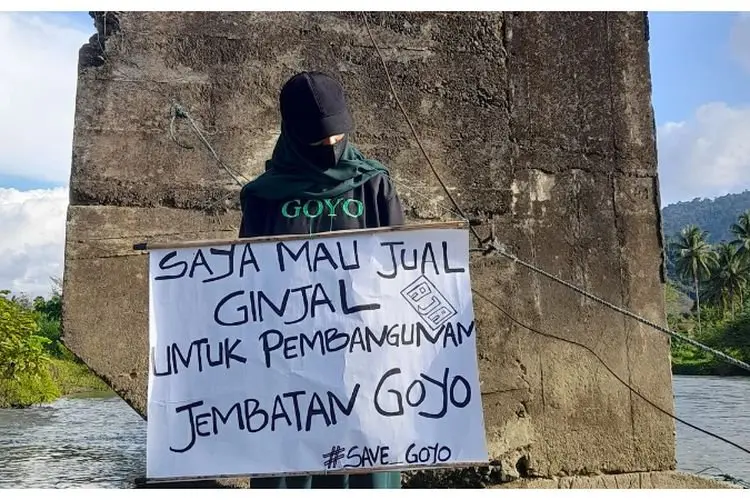 GOYO
SAYA MAU JUAL
GINJAL AJA
UNTUK PEMBANGUNAN
JEMBATAN GOYO
#SAVE_GOYO